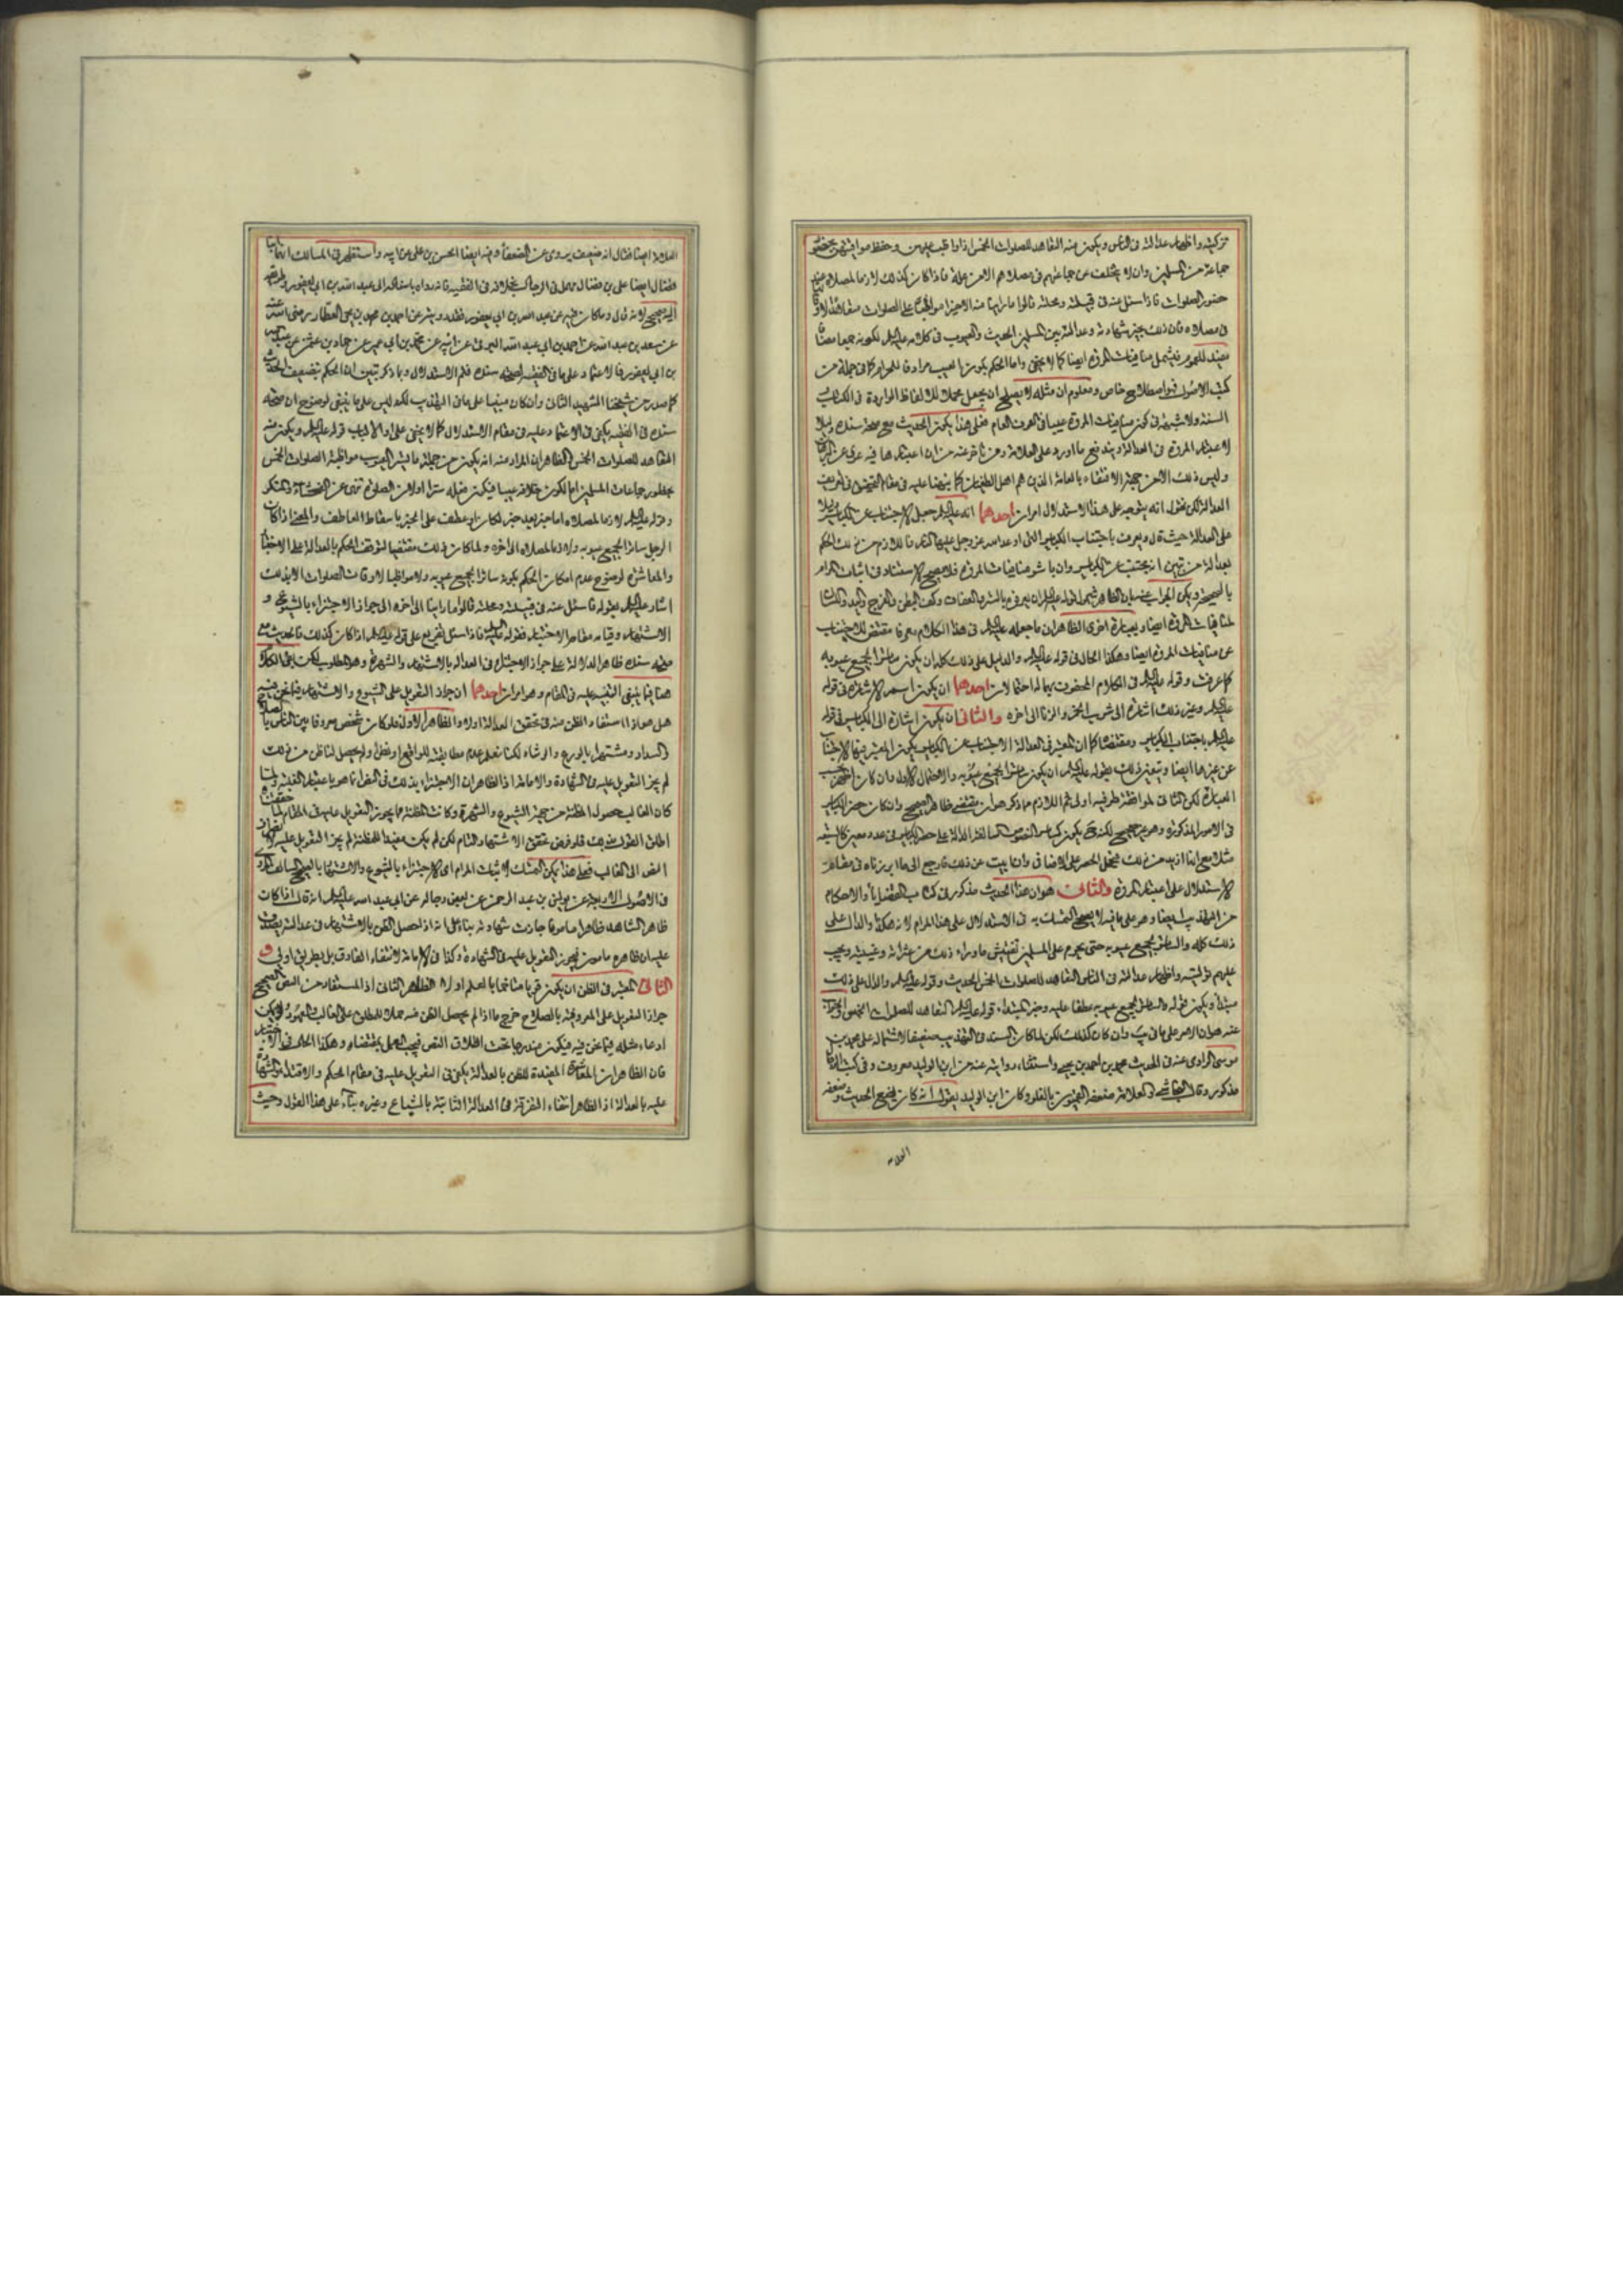 تزكيته واظهار عدالته فى الناس ويكون منه التعاهد للصلوات الخمس اذا واظب عليهن وحفظ مواقيتهن بحضور
جماعة من المسلمين وان لا يتخلف عن جماعتهم فى مصلاهم الا من علة فاذا كان كذلك لازما لمصلاه عند
حضور الصلوات فاذا سئل عنه فى قبيلته ومحلته قالوا ما راينا منه الا خيرا مواظبا على الصلوات متعاهدا لاوقاتها
فى مصلاه فان ذلك يجيز شهادته وعدالته بين المسلمين الحديث والعيوب فى كلامه عليه السلم لكونه جمعا مضافا
يفيد للعموم فيشمل منافيات المروة ايضا كما لا يخفى واما الحكم بكون العيب مرادفا للحرام كما فى جملة من
كتب الاصول فهو اصطلاح خاص ومعلوم ان مثله لا يصلح ان يجعل محملا للالفاظ الواردة فى الكتاب
السنة ولا شبهة فى كون منافيات المروة عيبا فى العرف العام فعلى هذا يكون الحديث مع صحة سنده دليلا
لاعتبار المروة فى العدالة ويندفع ما اورد على العلامة ومن تاخر عنه من ان اعتبارها فيه عرى عن
وليس ذلك الا من جهة الاقتفاء بالعامة الذين هم اهل الطغيان كما نبهنا عليه فى مقام
العدالة لكن نقول انه يتوجه على هذا الاستدلال امران احدهما انه عليه السلم جعل الاجتناب عن الكباير دليلا
على العدالة حيث قال ويعرف باجتناب الكباير التى اوعد الله عز وجل عليها النار فاللازم من ذلك الحكم
بعدالة من تبين انه يجتنب عن الكباير وان باشر منافيات المروة فلا يصح الاستناد فى اثبات المرام
بالصحيح ويمكن الجواب عنه بان الظاهر شمول قوله عليه السلم ان يعرفوه بالستر والعفاف وكف البطن والفرج واليد واللسان
لمنافيات المروة ايضا وبعبارة اخرى الظاهر ان ما جعله عليه السلم فى هذا الكلام معرفا مقتض للاجتناب
عن منافيات المروة ايضا وهكذا الحال فى قوله عليه السلم والدليل على ذلك كله ان يكون ساترا لجميع عيوبه
كما عرفت وقوله عليه السلم فى الكلام المحفوف بهما له احتمالان احدهما ان يكون اسم الاشارة فى قوله
عليه السلم وغير ذلك اشارة الى شرب الخمر والزنا الى اخره والثانى ان يكون اشارة الى الكباير فى قوله
عليه السلم باجتناب الكباير ومقتضاه كما ان المعتبر فى العدالة الاجتناب عن الكباير يكون المعتبر فيها الاجتناب
عن غيرها ايضا وتبعين ذلك بقوله عليه السلم ان يكون ساترا لجميع عيوبه والاحتمال الاول وان كان اظهر بحسب
العبارة لكن الثانى لمواظفة طرفيه اولى ثم اللازم مما ذكر هو ان مقتضى ظاهر الصحيح وان كان حصر الكباير
فى الامور المذكورة وهو غير صحيح لكنه يكون كساير النصوص السالفة الدالة على حصر الكباير فى عدد معين كالسبعة
مثلا مع انها ازيد من ذلك فيحمل الحصر على الاضافى وان ابيت عن ذلك فارجع الى ما ابرزناه فى مقام
الاستدلال على اعتبار المروة والثانى هو ان هذا الحديث مذكور فى كتاب القضايا والاحكام
من التهذيب ايضا وهو على ما فيه لا يصح التمسك به فى الاستدلال على هذا المرام لانه هكذا والدال على
ذلك كله والساتر لجميع عيوبه حتى يحرم على المسلمين تفتيش ما وراء ذلك من عثراته وغيبته ويجب
عليهم توليته واظهار عدالته فى الناس التعاهد للصلوات الخمس الحديث وقوله عليه السلم والدال على ذلك
مبتدأ ويكون قوله والساتر لجميع عيوبه عطفا عليه وخبر المبتداء قوله عليه السلم التعاهد للصلوات الخمس والجواب
عنه هو ان الامر على ما فى يب وان كان كذلك لكن لما كان السند فى التهذيب ضعيفا لاشتماله على محمد بن
موسى الراوى عنه فى الحديث محمد بن احمد بن يحيى واستثناء روايته عنه من ابن الوليد معروف وفى كتب الرجال
مذكور وقال النجاشى والعلامة ضعفه القميون بالغلو وكان ابن الوليد يقول انه كان يضع الحديث وضعفه
العلامة
العلامة ايضا فقال انه ضعيف يروى عن الضعفاء وفيه ايضا الحسن بن على عن ابيه واستظهر فى المسالك انه ابن
فضال ايضا على بن فضال مهمل فى الرجال بخلافه فى الفقيه فانه رواه باسناده الى عبد الله بن ابى يعفور وطريقه
اليه صحيح لانه قال وما كان فيه عن عبد الله بن ابى يعفور فقد رويته عن احمد بن محمد بن يحيى العطار رضى الله عنه
عن سعد بن عبد الله عن احمد بن ابى عبد الله البرقى عن ابيه عن محمد بن ابى عمير عن حماد بن عثمن عن عبد الله
بن ابى يعفور فالاعتماد على ما فى الفقيه لصحة سنده فلم الاستدلال وبما ذكر تبين ان الحكم بتضعيف الحديث
كما صدر من شيخنا الشهيد الثانى وان كان مبنيا على ما فى التهذيب لكنه ليس على ما ينبغى لوضوح ان صحة
سنده فى الفقيه يكفى فى الاعتماد عليه فى مقام الاستدلال كما لا يخفى على اولى الالباب قوله عليه السلم ويكون منه
التعاهد للصلوات الخمس الظاهر ان المراد منه انه يكون من جملة ما يستر العيوب مواظبة الصلوات الخمس
بحضور جماعات المسلمين اما لكون خلافه عيبا فيكون فعله سترا اولان الصلوة تنهى عن الفحشاء والمنكر
وقوله عليه السلم لازما لمصلاه اما خبر بعد خبر لكان او عطف على الخبر باسقاط العاطف والمعنى اذا كان
الرجل ساترا لجميع عيوبه ولازما لمصلاه الى اخره ولما كان ذلك مقتضيا لتوقف الحكم بالعدالة على الاختبار
والمعاشرة لوضوح عدم امكان الحكم بكونه ساترا لجميع عيوبه ومواظبا لاوقات الصلوات الا بذلك
اشار عليه السلم بقوله فاسئل عنه فى قبيلته ومحلته قالوا ما راينا الى اخره الى جواز الاجتزاء بالشيوع و
الاشتهار وقيامه مقام الاختبار فقوله عليه السلم فاذا سئل تفريع على قوله عليه السلم اذا كان كذلك فالحديث مع
صحة سنده ظاهر الدلالة على جواز الاجتزاء فى العدالة بالاشتهار والشهرة وهو المطلوب لكن بقى الكلام
هنا فيما ينبغى التنبيه عليه فى المقام وهو امران احدهما ان جواز التعويل على الشيوع والاشتهار فيما نحن فيه
هل هو اذا استفاد الظن منه فى تحقق العدالة اولا والظاهر الاول فلو كان شخص معروفا بين الناس بالصلاح
والسداد ومشتهرا بالورع والرشاد لكنا نعلم عدم مطابقته للواقع او نظن ولم يحصل لنا ظن من ذلك
لم يجز التعويل عليه فى الشهادة والامامة اذ الظاهر ان الاجتزاء بذلك فى النص انما هو باعتبار الغلبة ولما
كان الغالب حصول المظنة من جهة الشيوع والشهرة وكانت المظنة مما يجوز التعويل عليه فى المقام لما حققنا
اطلق القول بذلك فلو فرض تحقق الاشتهار التام لكن لم يكن مفيدا للمظنة لم يجز التعويل عليه لانصراف
النص الى الغالب فعلى هذا يمكن التمسك لاثبات المرام اى الاجتزاء بالشيوع والاشتهار بالصحيح السالف المروى
فى الاصول الاربعة عن يونس بن عبد الرحمن عن بعض رجاله عن ابى عبد الله عليه السلم انه قال اذا كان
ظاهر الشاهد ظاهرا مامونا جازت شهادته بناء على انه اذا حصل الظن بالاشتهار فى عدالته يصدق
عليه ان ظاهره مامون فيجوز التعويل عليه فى الشهادة وكذا فى الامامة لانتفاء الفارق بل بطريق اولى و
الثانى المعتبر فى الظن ان يكون قويا متاخما بالعلم او لا الظاهر الثانى اذ المستفاد من النص الصحيح
جواز التعويل على المعروفية بالصلاح خرج ما اذا لم يحصل الظن منه حملا للمطلق على الغالب والمعهود ولا يمكن
ادعاء مثله فيما نحن فيه فيكون مندرجا تحت اطلاق النص فيجب العمل بمقتضاه وهكذا الحال فى الاختبار
فان الظاهر ان المعاشرة المفيدة للظن بالعدالة يكفى فى التعويل عليه فى مقام الحكم والاقتداء والشهادة
عليه بالعدالة اذ الظاهر انتفاء التفرقة فى العدالة الثابتة بالشياع وغيره بناء على هذا القول وحيث